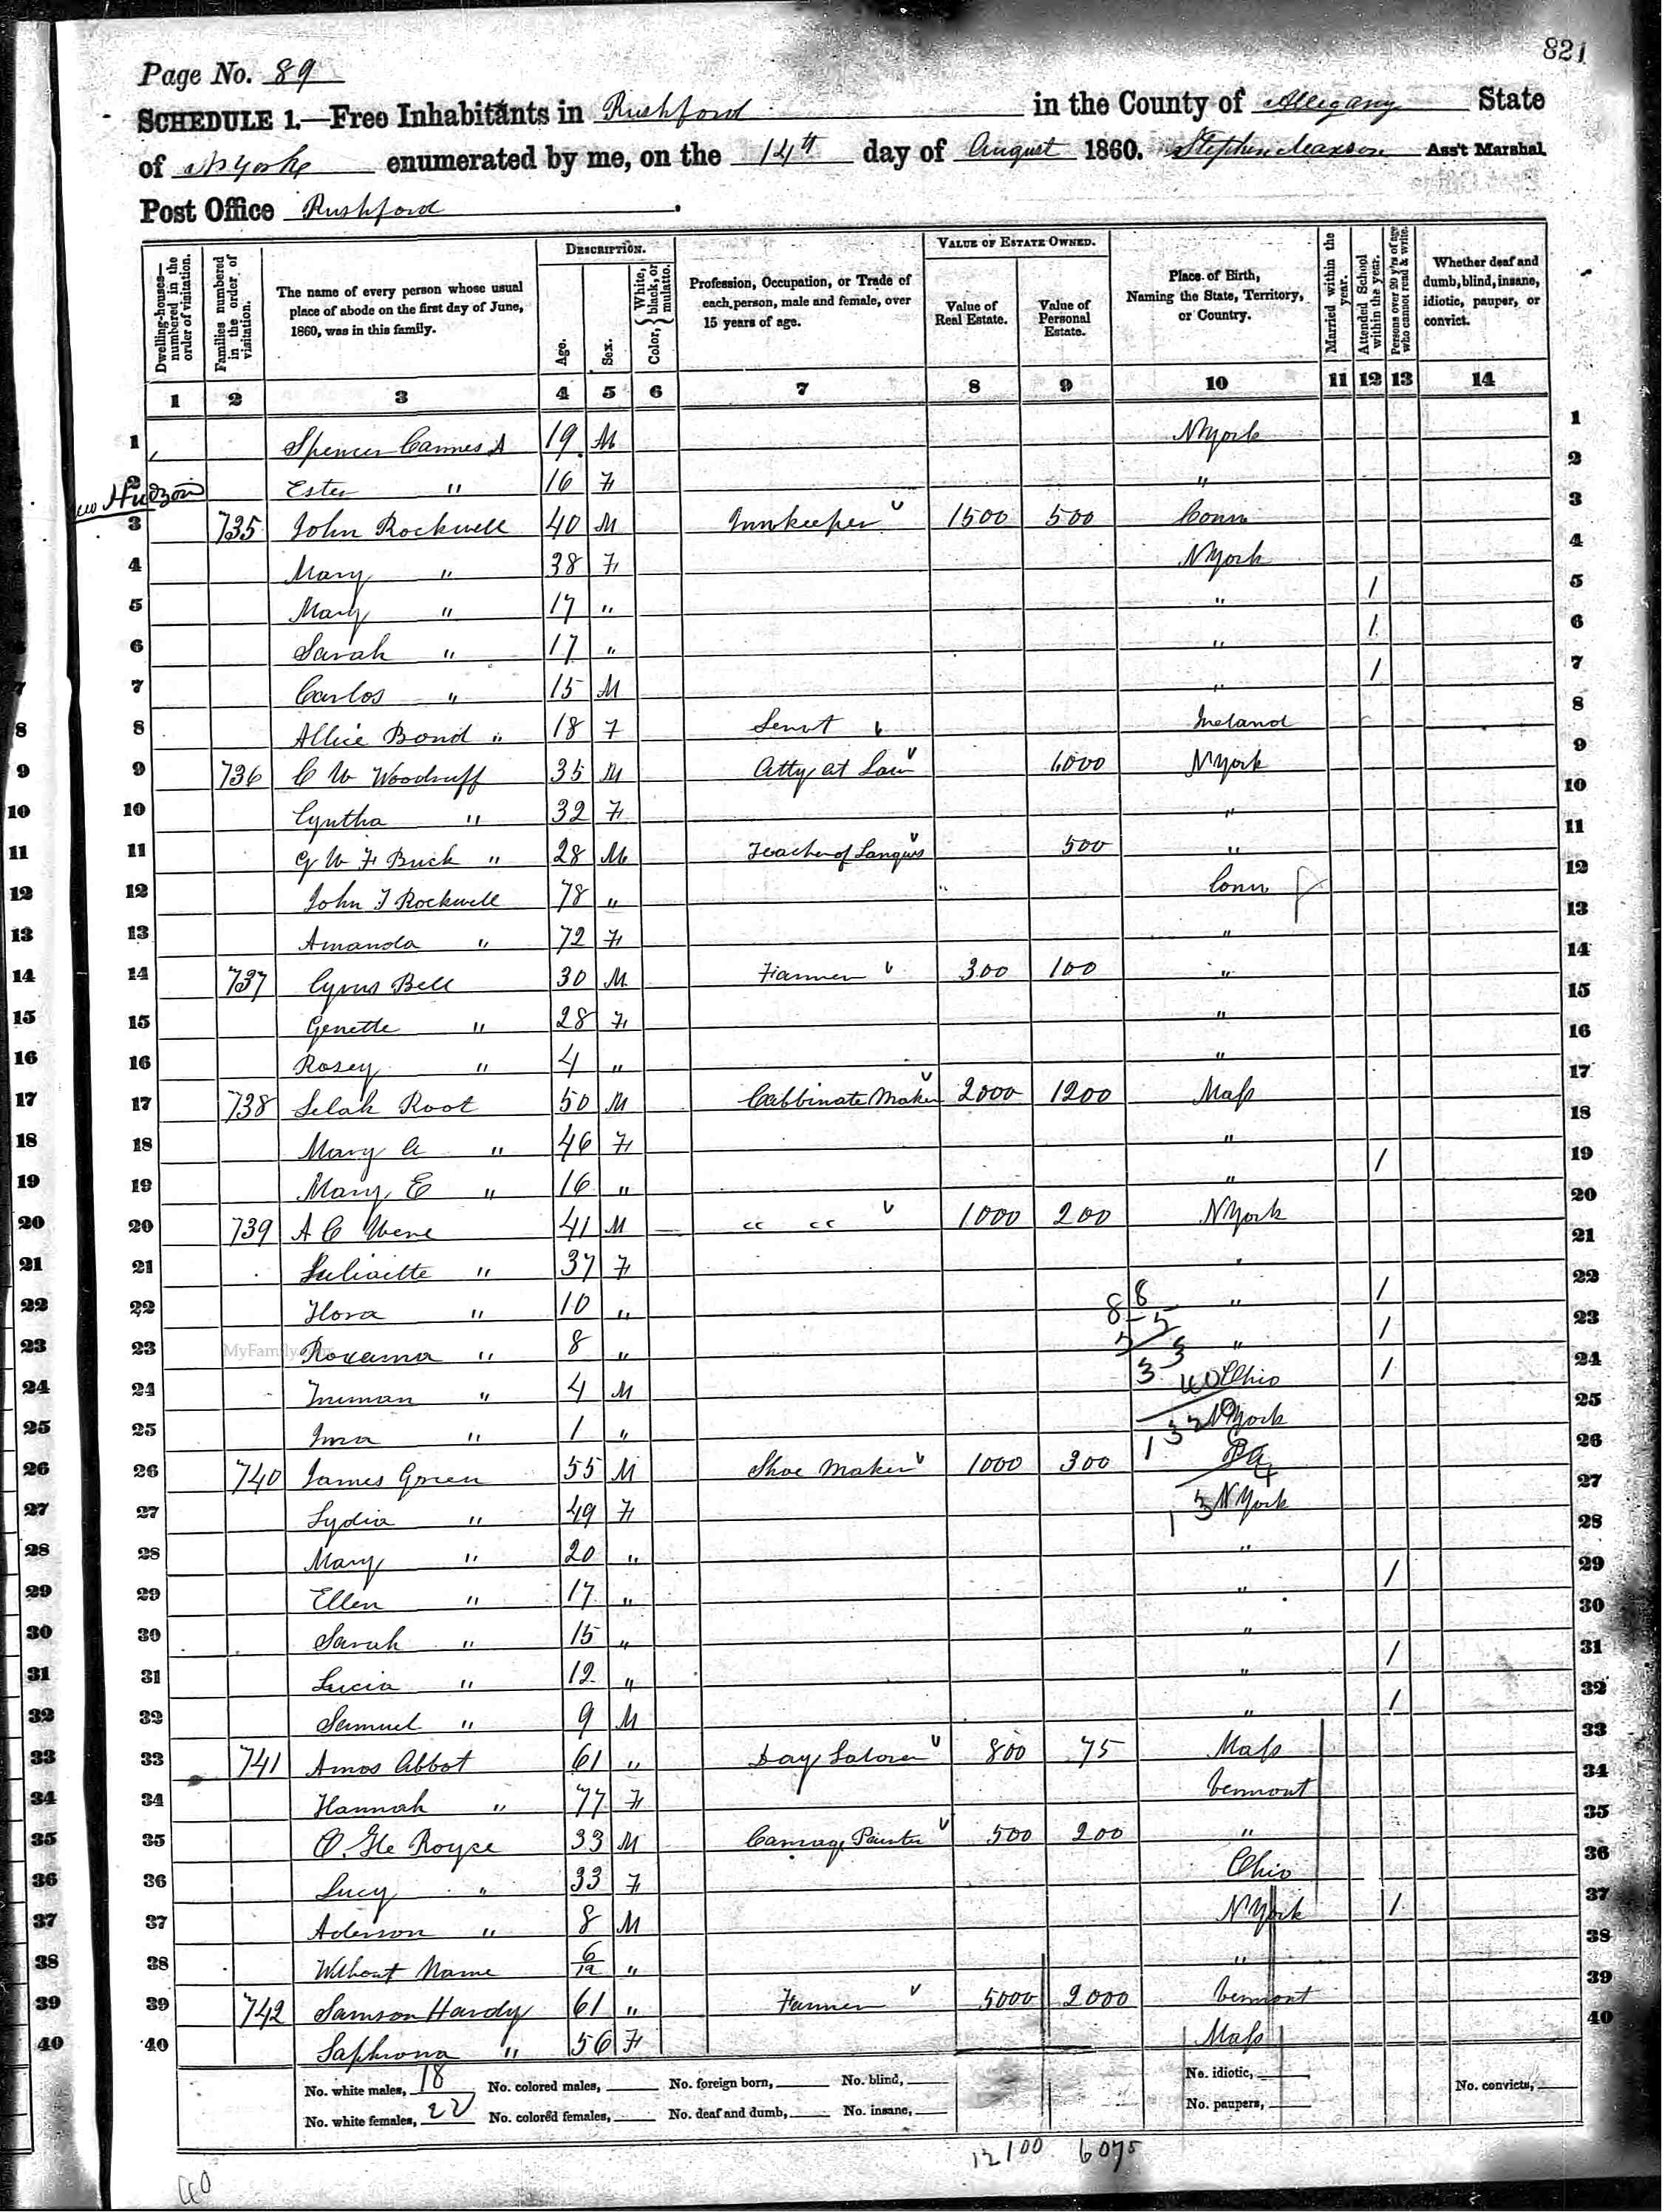 821
Page No. 89
SCHEDULE 1.—Free Inhabitants in Rushford in the County of Allegany State
of N York enumerated by me, on the 14th day of August 1860. Stephen Maxson Ass't Marshal
Post Office Rushford.
DESCRIPTION. VALUE OF ESTATE OWNED.
Dwelling-houses—numbered in the order of visitation. Families numbered in the order of visitation. The name of every person whose usual place of abode on the first day of June, 1860, was in this family. Age. Sex. Color, { White, black, or mulatto. Profession, Occupation, or Trade of each person, male and female, over 15 years of age. Value of Real Estate. Value of Personal Estate. Place of Birth, Naming the State, Territory, or Country. Married within the year. Attended School within the year. Persons over 20 y'rs of age who cannot read & write. Whether deaf and dumb, blind, insane, idiotic, pauper, or convict.
1 2 3 4 5 6 7 8 9 10 11 12 13 14
1 Spencer A 19 M N York 1
2 Ester " 16 F " 2
Hudson
3 735 John Rockwell 40 M Innkeeper 1500 500 Conn 3
4 Mary " 38 F N York 4
5 Mary " 17 " " / 5
6 Sarah " 17 " " / 6
7 Carlos " 15 M " / 7
8 Allice Bond " 18 F Servt Ireland 8
9 736 C W Woodruff 35 M Atty at Law N York 9
10 Cyntha " 32 F " 10
11 G W F Buck " 28 M Teacher of 500 " 11
12 John F Rockwell 78 " Conn 12
13 Amanda " 72 F " 13
14 737 Cyrus Bell 30 M Farmer 300 100 " 14
15 Genette " 28 F " 15
16 Rosey " 4 " " 16
17 738 Selah Root 50 M Cabbinate Maker 2000 1200 Mass 17
18 Mary A " 46 F " 18
19 Mary E " 16 " " / 19
20 739 A C 41 M " " 1000 200 N York 20
21 Juliaette " 37 F " 21
22 Flora " 10 " " / 22
23 " 8 " " / 23
24 Truman " 4 M Ohio / 24
25 " 1 " N York 25
26 740 James Green 55 M Shoe Maker 1000 300 Pa 26
27 Lydia " 49 F N York 27
28 Mary " 20 " " 28
29 Ellen " 17 " " / 29
30 Sarah " 15 " " 30
31 Lucia " 12 " " / 31
32 Samuel " 9 M " / 32
33 741 Amos Abbot 61 " Day Laborer 800 75 Mass 33
34 Hannah " 77 F Vermont 34
35 Royce 33 M Carriage Painter 500 200 " 35
36 Lucy " 33 F Ohio 36
37 Aderson " 8 M N York / 37
38 Without Name 6/12 " " 38
39 742 Samson Hardy 61 " Farmer 5000 2000 Vermont 39
40 Saphrona " 56 F Mass 40
No. white males, 18 No. colored males, No. foreign born, No. blind, No. idiotic, No. convicts,
No. white females, 22 No. colored females, No. deaf and dumb, No. insane, No. paupers,
12100 6075
40
MyFamily.com